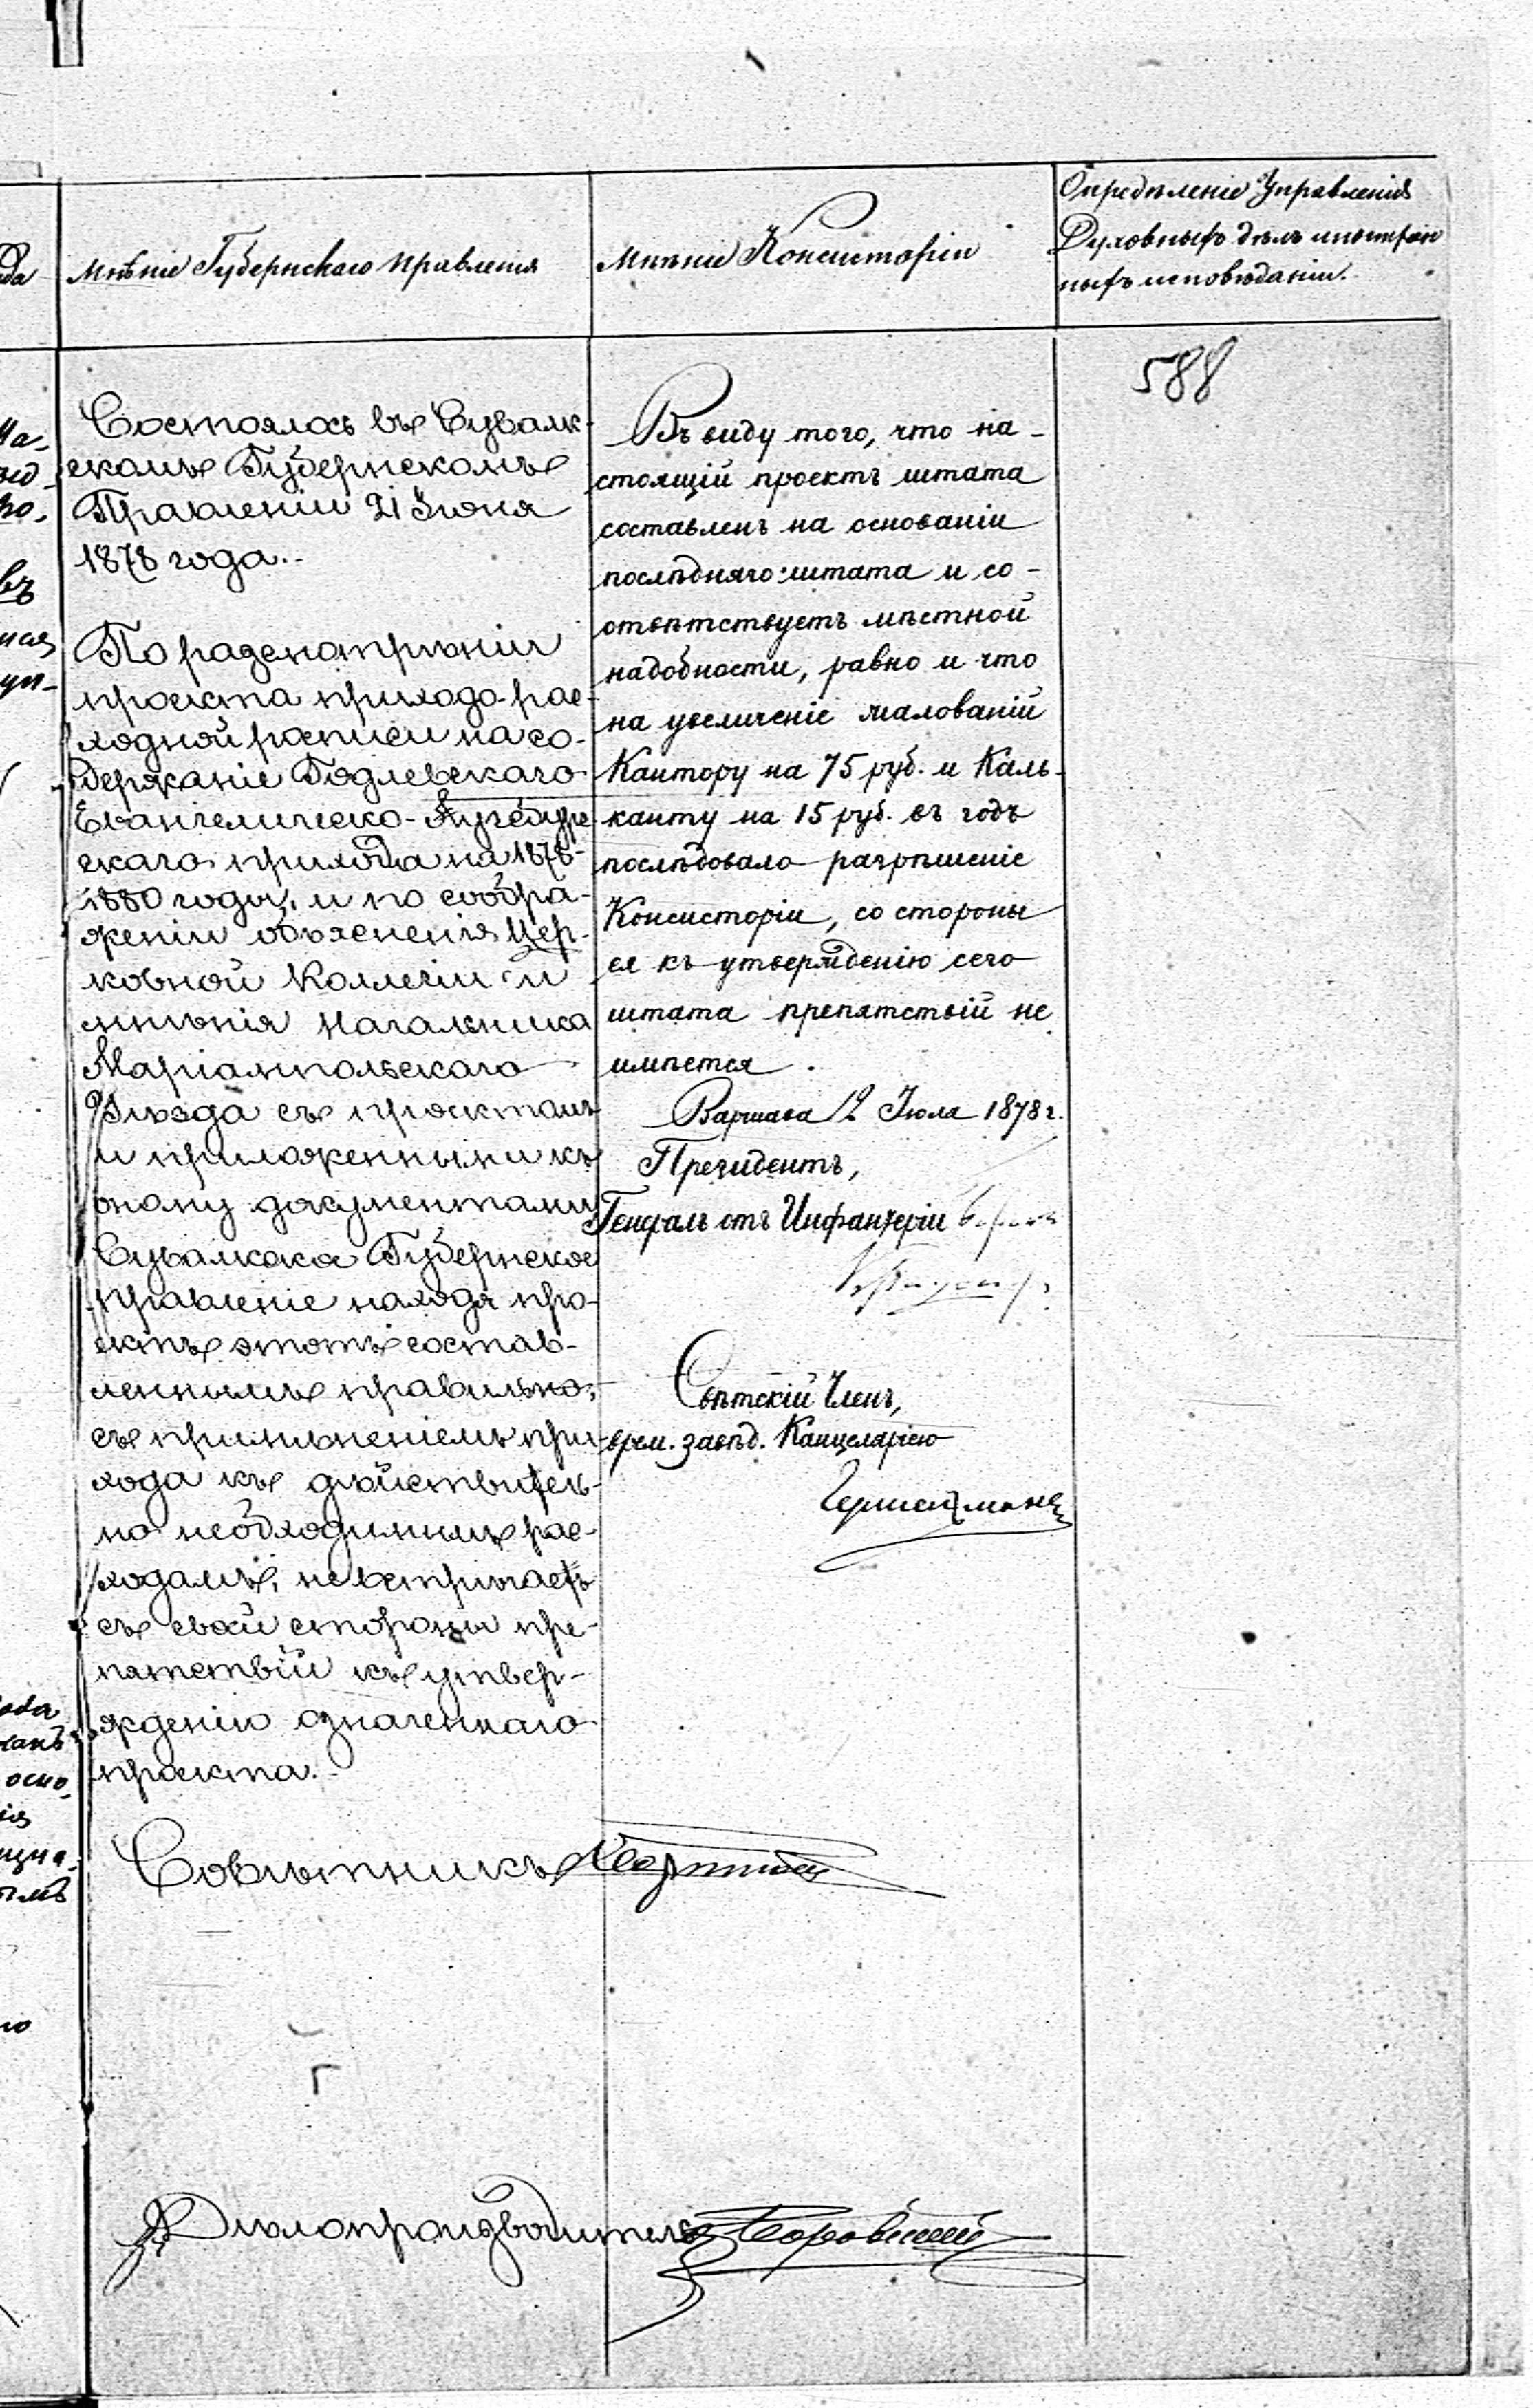 Мнѣніе Губернскаго Правленія
Состоялось въ Сувалк-
скомъ Губернскомъ
Правленіи 21 Іюня
1878 года.
По разсмотрѣніи
проекта приходо-рас-
ходной росписи на со-
держаніе Годлевскаго
Евангелическо-Аугсбург
скаго прихода на 1878-
1880 годы, и по сообра-
женіи объясненія Цер-
ковной Коллегіи и
мнѣнія Начальника
Маріампольскаго
Уѣзда съ проектомъ
и приложенными къ
оному документами
Сувалкское Губернское
Правленіе находя про-
ектъ этотъ состав-
леннымъ правильно,
съ примѣненіемъ при-
хода къ дѣйствитель-
но необходимымъ рас-
ходамъ, не встрѣчаетъ
съ своей стороны пре-
пятствій къ утвер-
жденію означеннаго
проекта.
Совѣтникъ
Дѣлопроизводитель
Мнѣніе Консисторіи
Въ виду того, что на-
стоящій проектъ штата
составленъ на основаніи
послѣдняго штата и со-
отвѣтствуетъ мѣстной
надобности, равно и что
на увеличеніе жалованій
Кантору на 75 руб. и Каль-
канту на 15 руб. въ годъ
послѣдовало разрѣшеніе
Консисторіи, со стороны
ея къ утвержденію сего
штата препятствій не
имѣется.
Варшава 12 Іюля 1878 г.
Президентъ,
Генералъ отъ Инфантеріи
Свѣтскій Членъ,
врем. завѣд. Канцеляріею
Опредѣленіе Управленія
Духовныхъ дѣлъ иностран
ныхъ исповѣданій.
588